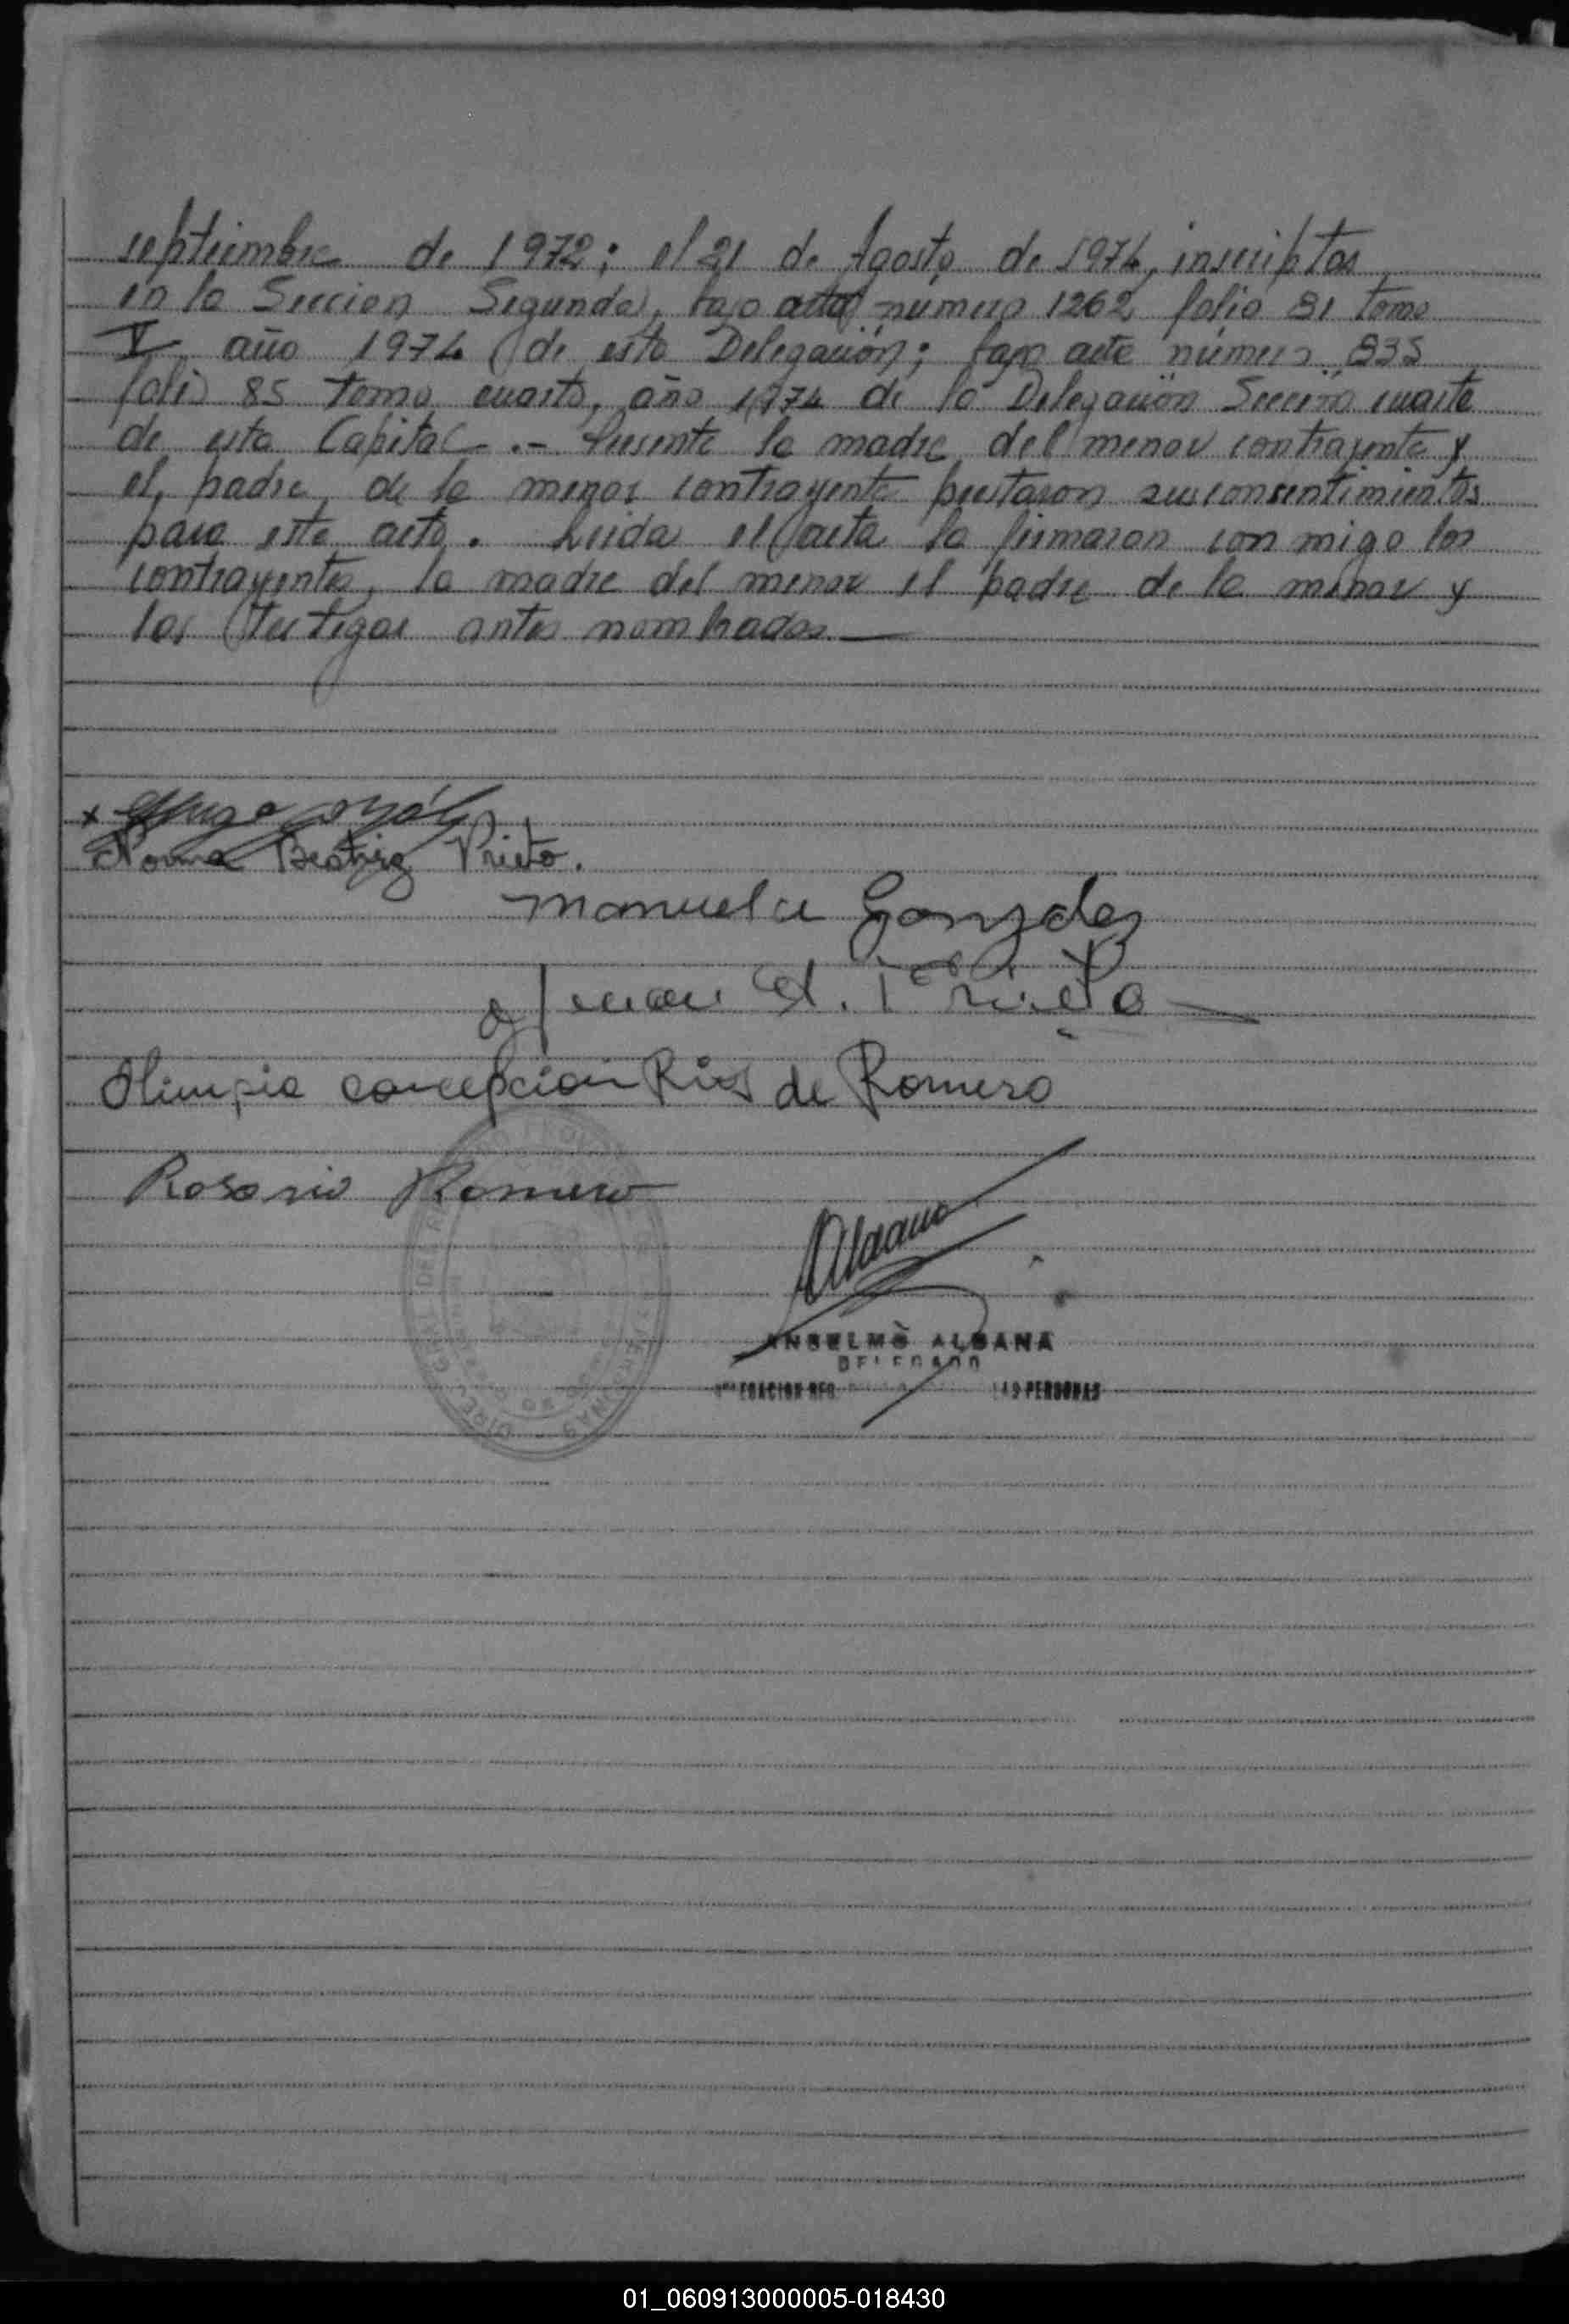 septiembre de 1972; el 21 de Agosto de 1974, inscriptos
en la Seccion Segunda, bajo acta numero 1262 folio 81 tomo
V año 1974 de esta Delegación; bajo acta número 835
folio 85 tomo cuarto, año 1974 de la Delegación Sección cuarta
de esta Capital.- Presente la madre del menor contrayente y
el padre de la menor contrayente prestaron sus consentimientos
para este acto. Leida el acta la firmaron con migo los
contrayentes, la madre del menor el padre de la menor y
los testigos antes nombrados —
x
Norma Beatriz Prieto.
Manuela Gonzalez
Juan A. Prieto
Olimpia concepcion Rios de Romero
Rosario Romero
Aldana
ANSELMO ALDANA
DELEGADO
LAS PERSONAS
01_060913000005-018430